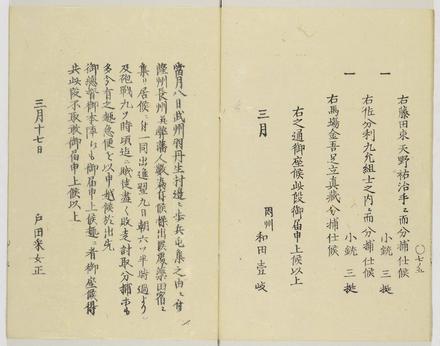 右藤田東天野祐治手ニ而分捕仕候
一 小銃 三挺
右佐分利九允組士之内ニ而分捕仕候
一 小銃 三挺
右馬場金吾足立真蔵分捕仕候
右之通御座候此段御届申上候以上
三月 同州 和田壹岐
當月八日武州羽丹生村邊ニ歩兵屯集之由ニ付
隆州長州弊藩人數為有候様出張梁田宿ニ
集リ居候ニ付一同出進翌九日朝六ツ半時過より
及砲戦九ツ時頃迄ニ賊徒盡く敗走討取分捕等も
多分有之趣急便を以申越候於出先
御總督御本陣にも御届申上候趣ニ者御座候得
共此段不取敢御届申上候以上
三月十七日 戸田采女正